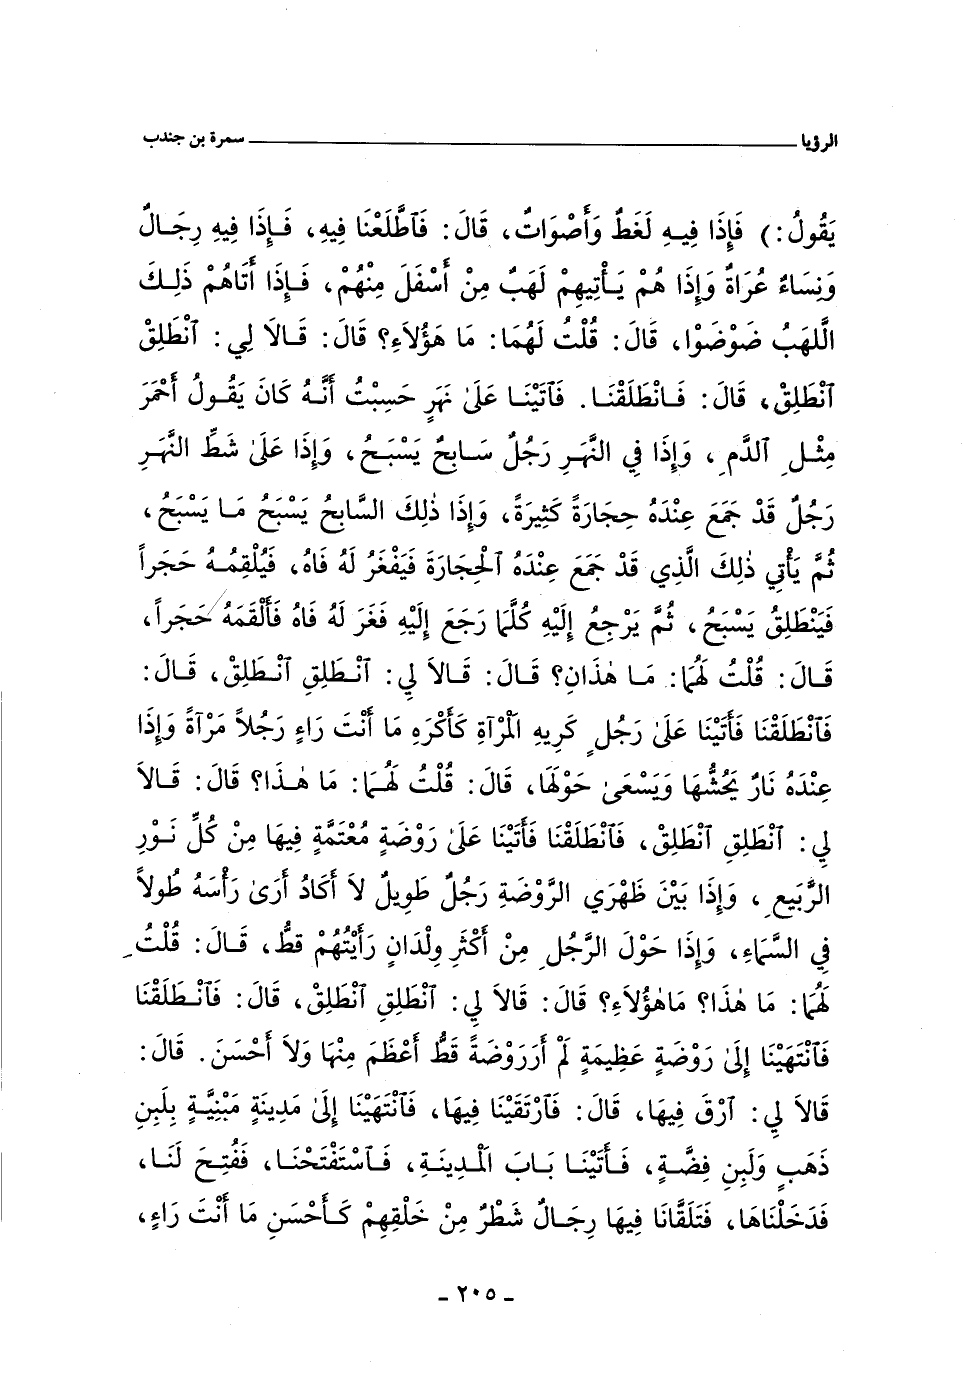 الرؤيا سمرة بن جندب
يَقُولُ:) فَإِذَا فِيهِ لَغَطٌ وَأَصْوَاتٌ، قَالَ: فَٱطَّلَعْنَا فِيهِ، فَإِذَا فِيهِ رِجَالٌ
وَنِسَاءٌ عُرَاةٌ وَإِذَا هُمْ يَأْتِيهِمْ لَهَبٌ مِنْ أَسْفَلَ مِنْهُمْ، فَإِذَا أَتَاهُمْ ذَلِكَ
اللَّهَبُ ضَوْضَوْا، قَالَ: قُلْتُ لَهُمَا: مَا هَؤُلاَءِ؟ قَالَ: قَالاَ لِي: ٱنْطَلِقْ
ٱنْطَلِقْ، قَالَ: فَانْطَلَقْنَا. فَأَتَيْنَا عَلَىٰ نَهَرٍ حَسِبْتُ أَنَّهُ كَانَ يَقُولُ أَحْمَرَ
مِثْلِ ٱلدَّمِ، وَإِذَا فِي النَّهَرِ رَجُلٌ سَابِحٌ يَسْبَحُ، وَإِذَا عَلَىٰ شَطِّ النَّهَرِ
رَجُلٌ قَدْ جَمَعَ عِنْدَهُ حِجَارَةً كَثِيرَةً، وَإِذَا ذٰلِكَ السَّابِحُ يَسْبَحُ مَا يَسْبَحُ،
ثُمَّ يَأْتِي ذٰلِكَ الَّذِي قَدْ جَمَعَ عِنْدَهُ ٱلْحِجَارَةَ فَيَفْغَرُ لَهُ فَاهُ، فَيُلْقِمُهُ حَجَراً
فَيَنْطَلِقُ يَسْبَحُ، ثُمَّ يَرْجِعُ إِلَيْهِ كُلَّمَا رَجَعَ إِلَيْهِ فَغَرَ لَهُ فَاهُ فَأَلْقَمَهُ حَجَراً،
قَالَ: قُلْتُ لَهُمَا: مَا هٰذَانِ؟ قَالَ: قَالاَ لِي: ٱنْطَلِقِ ٱنْطَلِقْ، قَالَ:
فَٱنْطَلَقْنَا فَأَتَيْنَا عَلَىٰ رَجُلٍ كَرِيهِ ٱلْمَرْآةِ كَأَكْرَهِ مَا أَنْتَ رَاءٍ رَجُلاً مَرْآةً وَإِذَا
عِنْدَهُ نَارٌ يَحُشُّهَا وَيَسْعَىٰ حَوْلَهَا، قَالَ: قُلْتُ لَهُمَا: مَا هٰذَا؟ قَالَ: قَالاَ
لِي: ٱنْطَلِقِ ٱنْطَلِقْ، فَٱنْطَلَقْنَا فَأَتَيْنَا عَلَىٰ رَوْضَةٍ مُعْتَمَّةٍ فِيهَا مِنْ كُلِّ نَوْرِ
الرَّبِيعِ، وَإِذَا بَيْنَ ظَهْرَيِ الرَّوْضَةِ رَجُلٌ طَوِيلٌ لاَ أَكَادُ أَرَىٰ رَأْسَهُ طُولاً
فِي السَّمَاءِ، وَإِذَا حَوْلَ الرَّجُلِ مِنْ أَكْثَرِ وِلْدَانٍ رَأَيْتُهُمْ قَطُّ، قَالَ: قُلْتُ
لَهُمَا: مَا هٰذَا؟ مَاهٰؤُلاَءِ؟ قَالَ: قَالاَ لِي: ٱنْطَلِقِ ٱنْطَلِقْ، قَالَ: فَٱنْطَلَقْنَا
فَٱنْتَهَيْنَا إِلَىٰ رَوْضَةٍ عَظِيمَةٍ لَمْ أَرَرَوْضَةً قَطُّ أَعْظَمَ مِنْهَا وَلاَ أَحْسَنَ. قَالَ:
قَالاَ لِي: ٱرْقَ فِيهَا، قَالَ: فَٱرْتَقَيْنَا فِيهَا، فَٱنْتَهَيْنَا إِلَىٰ مَدِينَةٍ مَبْنِيَّةٍ بِلَبِنِ
ذَهَبٍ وَلَبِنِ فِضَّةٍ، فَأَتَيْنَا بَابَ ٱلْمَدِينَةِ، فَٱسْتَفْتَحْنَا، فَفُتِحَ لَنَا،
فَدَخَلْنَاهَا، فَتَلَقَّانَا فِيهَا رِجَالٌ شَطْرٌ مِنْ خَلْقِهِمْ كَأَحْسَنِ مَا أَنْتَ رَاءٍ،
ـ ٢٠٥ ـ